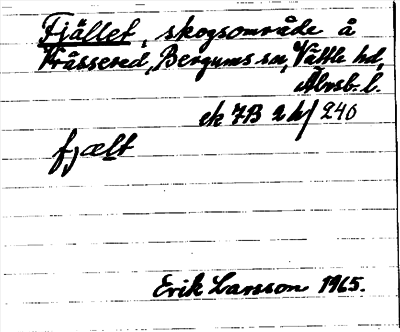 Fjället, skogsområde å
Kråssered, Bergums sn, Vättle hd,
Älvsb. l.
ek 7B 2 h/ 240
fjælt
Erik Larsson 1965.